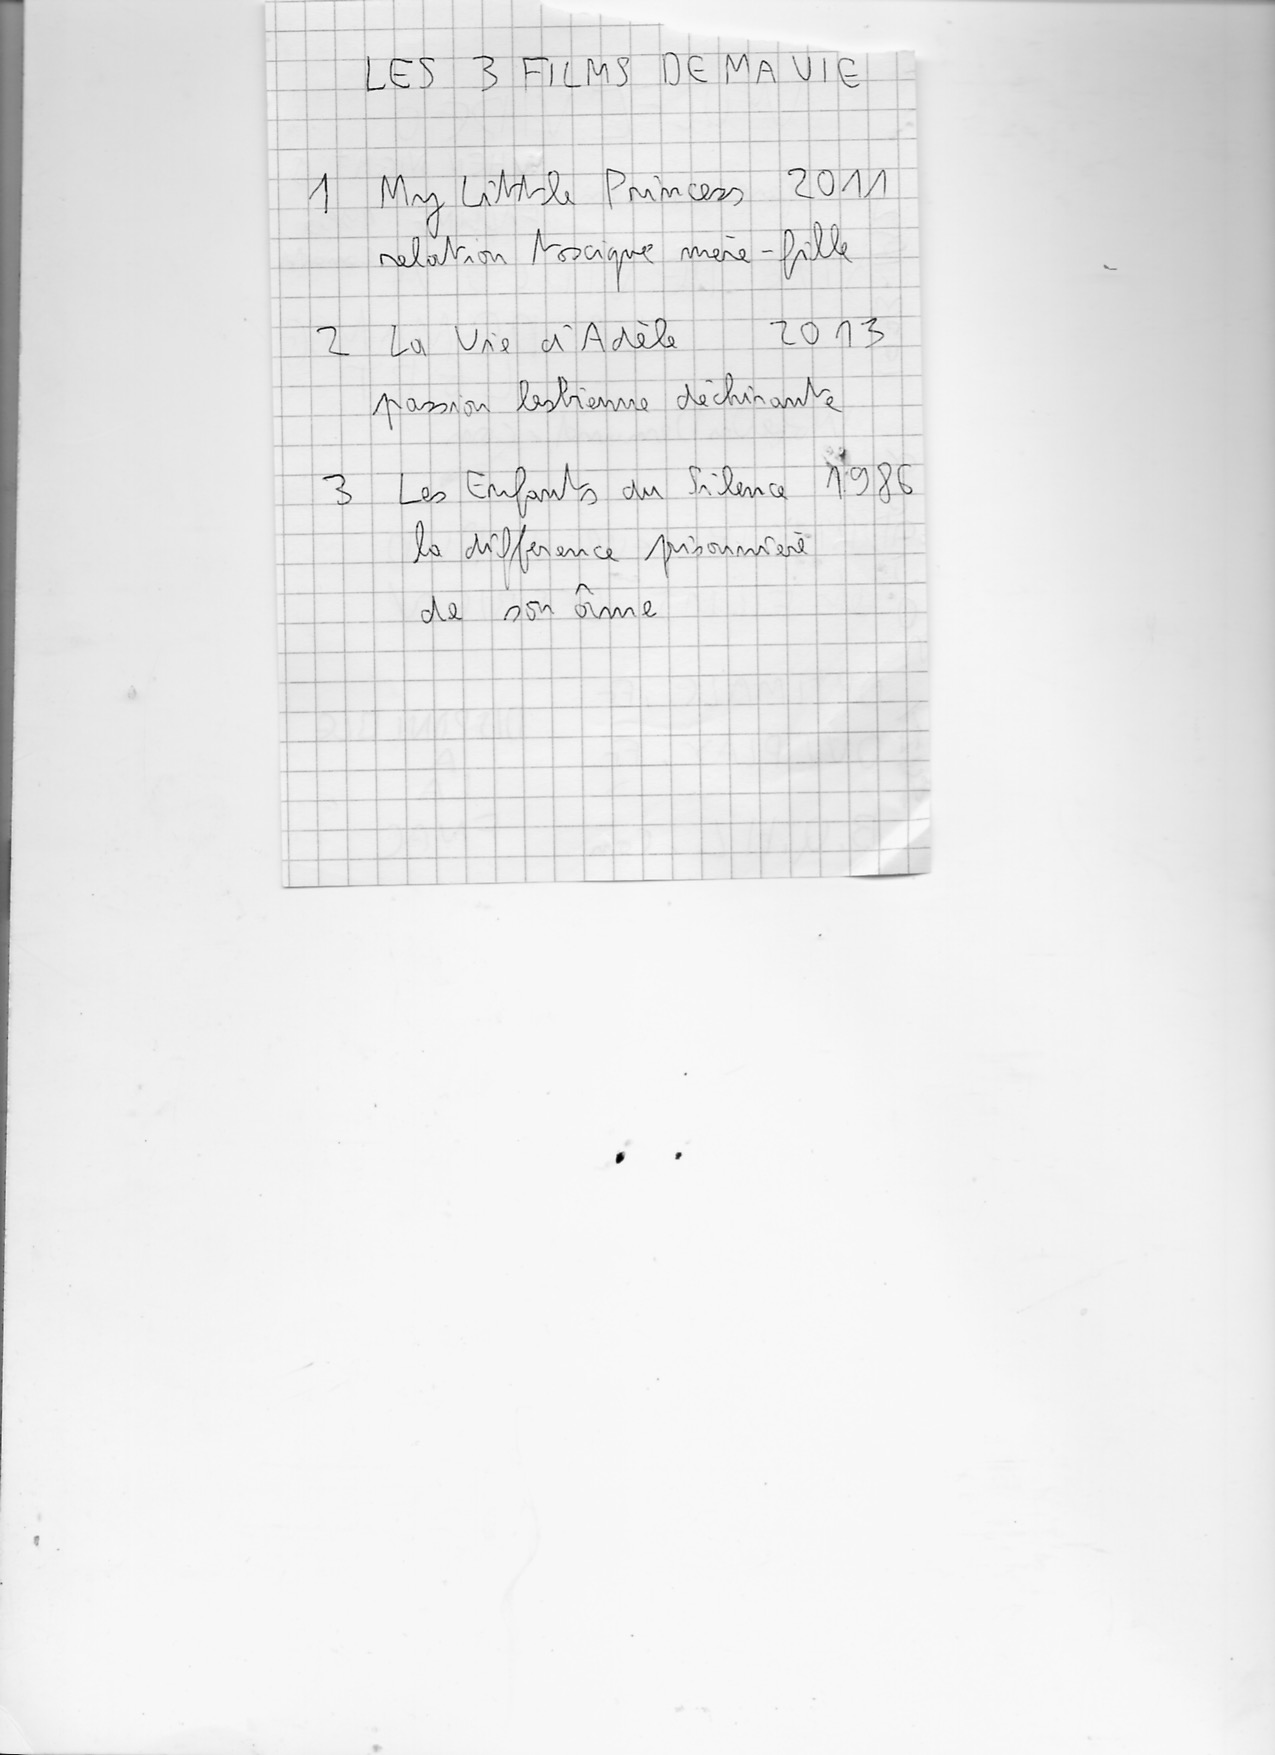 LES 3 FILMS DE MA VIE
1 My Little Princess 2011
relation toxique mère-fille
2 La Vie d'Adèle 2013
passion lesbienne déchirante
3 Les Enfants du Silence 1986
la différence prisonnière
de son âme